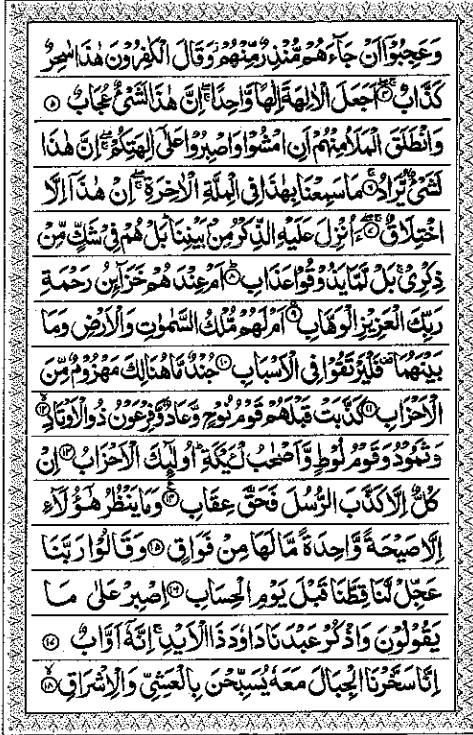 وَعَجِبُوْۤا اَنْ جَآءَهُمْ مُّنْذِرٌ مِّنْهُمْ ؗ وَقَالَ الْكٰفِرُوْنَ هٰذَا سٰحِرٌ
كَذَّابٌ ۝۴ اَجَعَلَ الْاٰلِهَةَ اِلٰهًا وَّاحِدًا ۖۚ اِنَّ هٰذَا لَشَیْءٌ عُجَابٌ ۝۵
وَانْطَلَقَ الْمَلَاُ مِنْهُمْ اَنِ امْشُوْا وَاصْبِرُوْا عَلٰۤی اٰلِهَتِكُمْ ۖۚ اِنَّ هٰذَا
لَشَیْءٌ یُّرَادُ ۝۶ مَا سَمِعْنَا بِهٰذَا فِی الْمِلَّةِ الْاٰخِرَةِ ۖۚ اِنْ هٰذَاۤ اِلَّا
اخْتِلَاقٌ ۝۷ ءَاُنْزِلَ عَلَیْهِ الذِّكْرُ مِنْۢ بَیْنِنَا ؕ بَلْ هُمْ فِیْ شَكٍّ مِّنْ
ذِكْرِیْ ۚ بَلْ لَّمَّا یَذُوْقُوْا عَذَابِ ۝۸ اَمْ عِنْدَهُمْ خَزَآىِٕنُ رَحْمَةِ
رَبِّكَ الْعَزِیْزِ الْوَهَّابِ ۝۹ اَمْ لَهُمْ مُّلْكُ السَّمٰوٰتِ وَالْاَرْضِ وَمَا
بَیْنَهُمَا ۫ فَلْیَرْتَقُوْا فِی الْاَسْبَابِ ۝۱۰ جُنْدٌ مَّا هُنَالِكَ مَهْزُوْمٌ مِّنَ
الْاَحْزَابِ ۝۱۱ كَذَّبَتْ قَبْلَهُمْ قَوْمُ نُوْحٍ وَّعَادٌ وَّفِرْعَوْنُ ذُو الْاَوْتَادِ ۝۱۲
وَثَمُوْدُ وَقَوْمُ لُوْطٍ وَّاَصْحٰبُ لْـَٔیْكَةِ ؕ اُولٰٓىِٕكَ الْاَحْزَابُ ۝۱۳ اِنْ
كُلٌّ اِلَّا كَذَّبَ الرُّسُلَ فَحَقَّ عِقَابِ ۝۱۴ وَمَا یَنْظُرُ هٰۤؤُلَآءِ
اِلَّا صَیْحَةً وَّاحِدَةً مَّا لَهَا مِنْ فَوَاقٍ ۝۱۵ وَقَالُوْا رَبَّنَا
عَجِّلْ لَّنَا قِطَّنَا قَبْلَ یَوْمِ الْحِسَابِ ۝۱۶ اِصْبِرْ عَلٰی مَا
یَقُوْلُوْنَ وَاذْكُرْ عَبْدَنَا دَاوٗدَ ذَا الْاَیْدِ ۚ اِنَّهٗۤ اَوَّابٌ ۝۱۷
اِنَّا سَخَّرْنَا الْجِبَالَ مَعَهٗ یُسَبِّحْنَ بِالْعَشِیِّ وَالْاِشْرَاقِ ۝۱۸